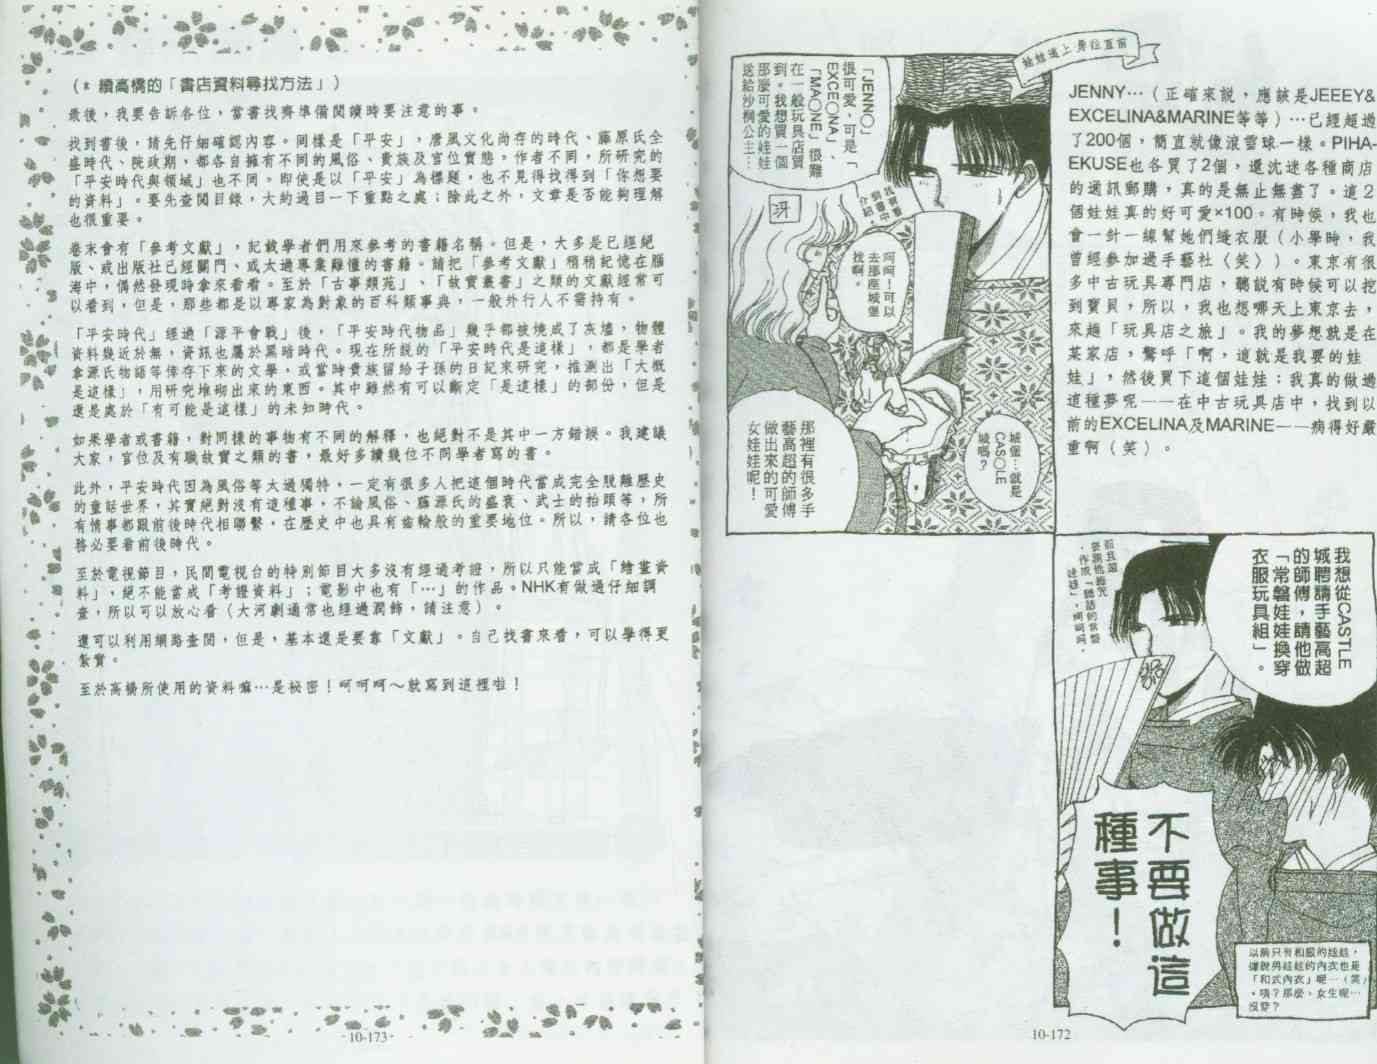 娃娃道上 勇往直前
JENNY…（正確來說，應該是JEEEY&
EXCELINA&MARINE等等）…已經超過
了200個，簡直就像滾雪球一樣。PIHA-
EKUSE也各買了2個，還沈迷各種商店
的通訊郵購，真的是無止無盡了。這２
個娃娃真的好可愛×100。有時候，我也
會一針一線幫她們縫衣服（小學時，我
曾經參加過手藝社〈笑〉）。東京有很
多中古玩具專門店，聽說有時候可以挖
到寶貝，所以，我也想哪天上東京去，
來趟「玩具店之旅」。我的夢想就是在
某家店，驚呼「啊，這就是我要的娃
娃」，然後買下這個娃娃；我真的做過
這種夢呢——在中古玩具店中，找到以
前的EXCELINA及MARINE——病得好嚴
重啊（笑）。
「JENN○」
很可愛，可是「
EXCE○NA」、
「MA○NE」很難
在一般玩具店買
到。我想買一個
那麼可愛的娃娃
送給沙桐公主…
冴
呵呵！可以
去那座城堡
找啊。
城堡…就是
CAS○LE
城嗎？
那裡有很多手
藝高超的師傅
做出來的可愛
女娃娃呢！
我想從CASTLE
城聘請手藝高超
的師傅，請他做
「常磐娃娃換穿
衣服玩具組」。
不要做這
種事！
以前只有和服的娃娃，
據說男娃娃的內衣也是
「和式內衣」呢…（笑）
。咦？那麼，女生呢…
沒穿？
10-172
(＊ 續高橋的「書店資料尋找方法」)
最後，我要告訴各位，當書找齊準備閱讀時要注意的事。
找到書後，請先仔細確認內容。同樣是「平安」，唐風文化尚存的時代、藤原氏全
盛時代、院政期，都各自擁有不同的風俗、貴族及官位實態。作者不同，所研究的
「平安時代與領域」也不同。即使是以「平安」為標題，也不見得找得到「你想要
的資料」。要先查閱目錄，大約過目一下重點之處；除此之外，文章是否能夠理解
也很重要。
卷末會有「參考文獻」，記載學者們用來參考的書籍名稱。但是，大多是已經絕
版、或出版社已經關門、或太過專業難懂的書籍。請把「參考文獻」稍稍記憶在腦
海中，偶然發現時拿來看看。至於「古事類苑」、「故實叢書」之類的文獻經常可
以看到，但是，那些都是以專家為對象的百科類事典，一般外行人不需持有。
「平安時代」經過「源平會戰」後，「平安時代物品」幾乎都被燒成了灰燼，物體
資料幾近於無，資訊也屬於黑暗時代。現在所說的「平安時代是這樣」，都是學者
拿源氏物語等倖存下來的文學，或當時貴族留給子孫的日記來研究，推測出「大概
是這樣」，用研究堆砌出來的東西。其中雖然有可以斷定「是這樣」的部份，但是
還是處於「有可能是這樣」的未知時代。
如果學者或書籍，對同樣的事物有不同的解釋，也絕對不是其中一方錯誤。我建議
大家，官位及有職故實之類的書，最好多讀幾位不同學者寫的書。
此外，平安時代因為風俗等太過獨特，一定有很多人把這個時代當成完全脫離歷史
的童話世界，其實絕對沒有這種事，不論風俗、藤源氏的盛衰、武士的抬頭等，所
有情事都跟前後時代相聯繫，在歷史中也具有齒輪般的重要地位。所以，請各位也
務必要看前後時代。
至於電視節目，民間電視台的特別節目大多沒有經過考證，所以只能當成「繪畫資
料」，絕不能當成「考證資料」；電影中也有「…」的作品。NHK有做過仔細調
查，所以可以放心看（大河劇通常也經過潤飾，請注意）。
還可以利用網路查閱，但是，基本還是要靠「文獻」。自己找書來看，可以學得更
紮實。
至於高橋所使用的資料嘛…是秘密！呵呵呵～就寫到這裡啦！
10-173